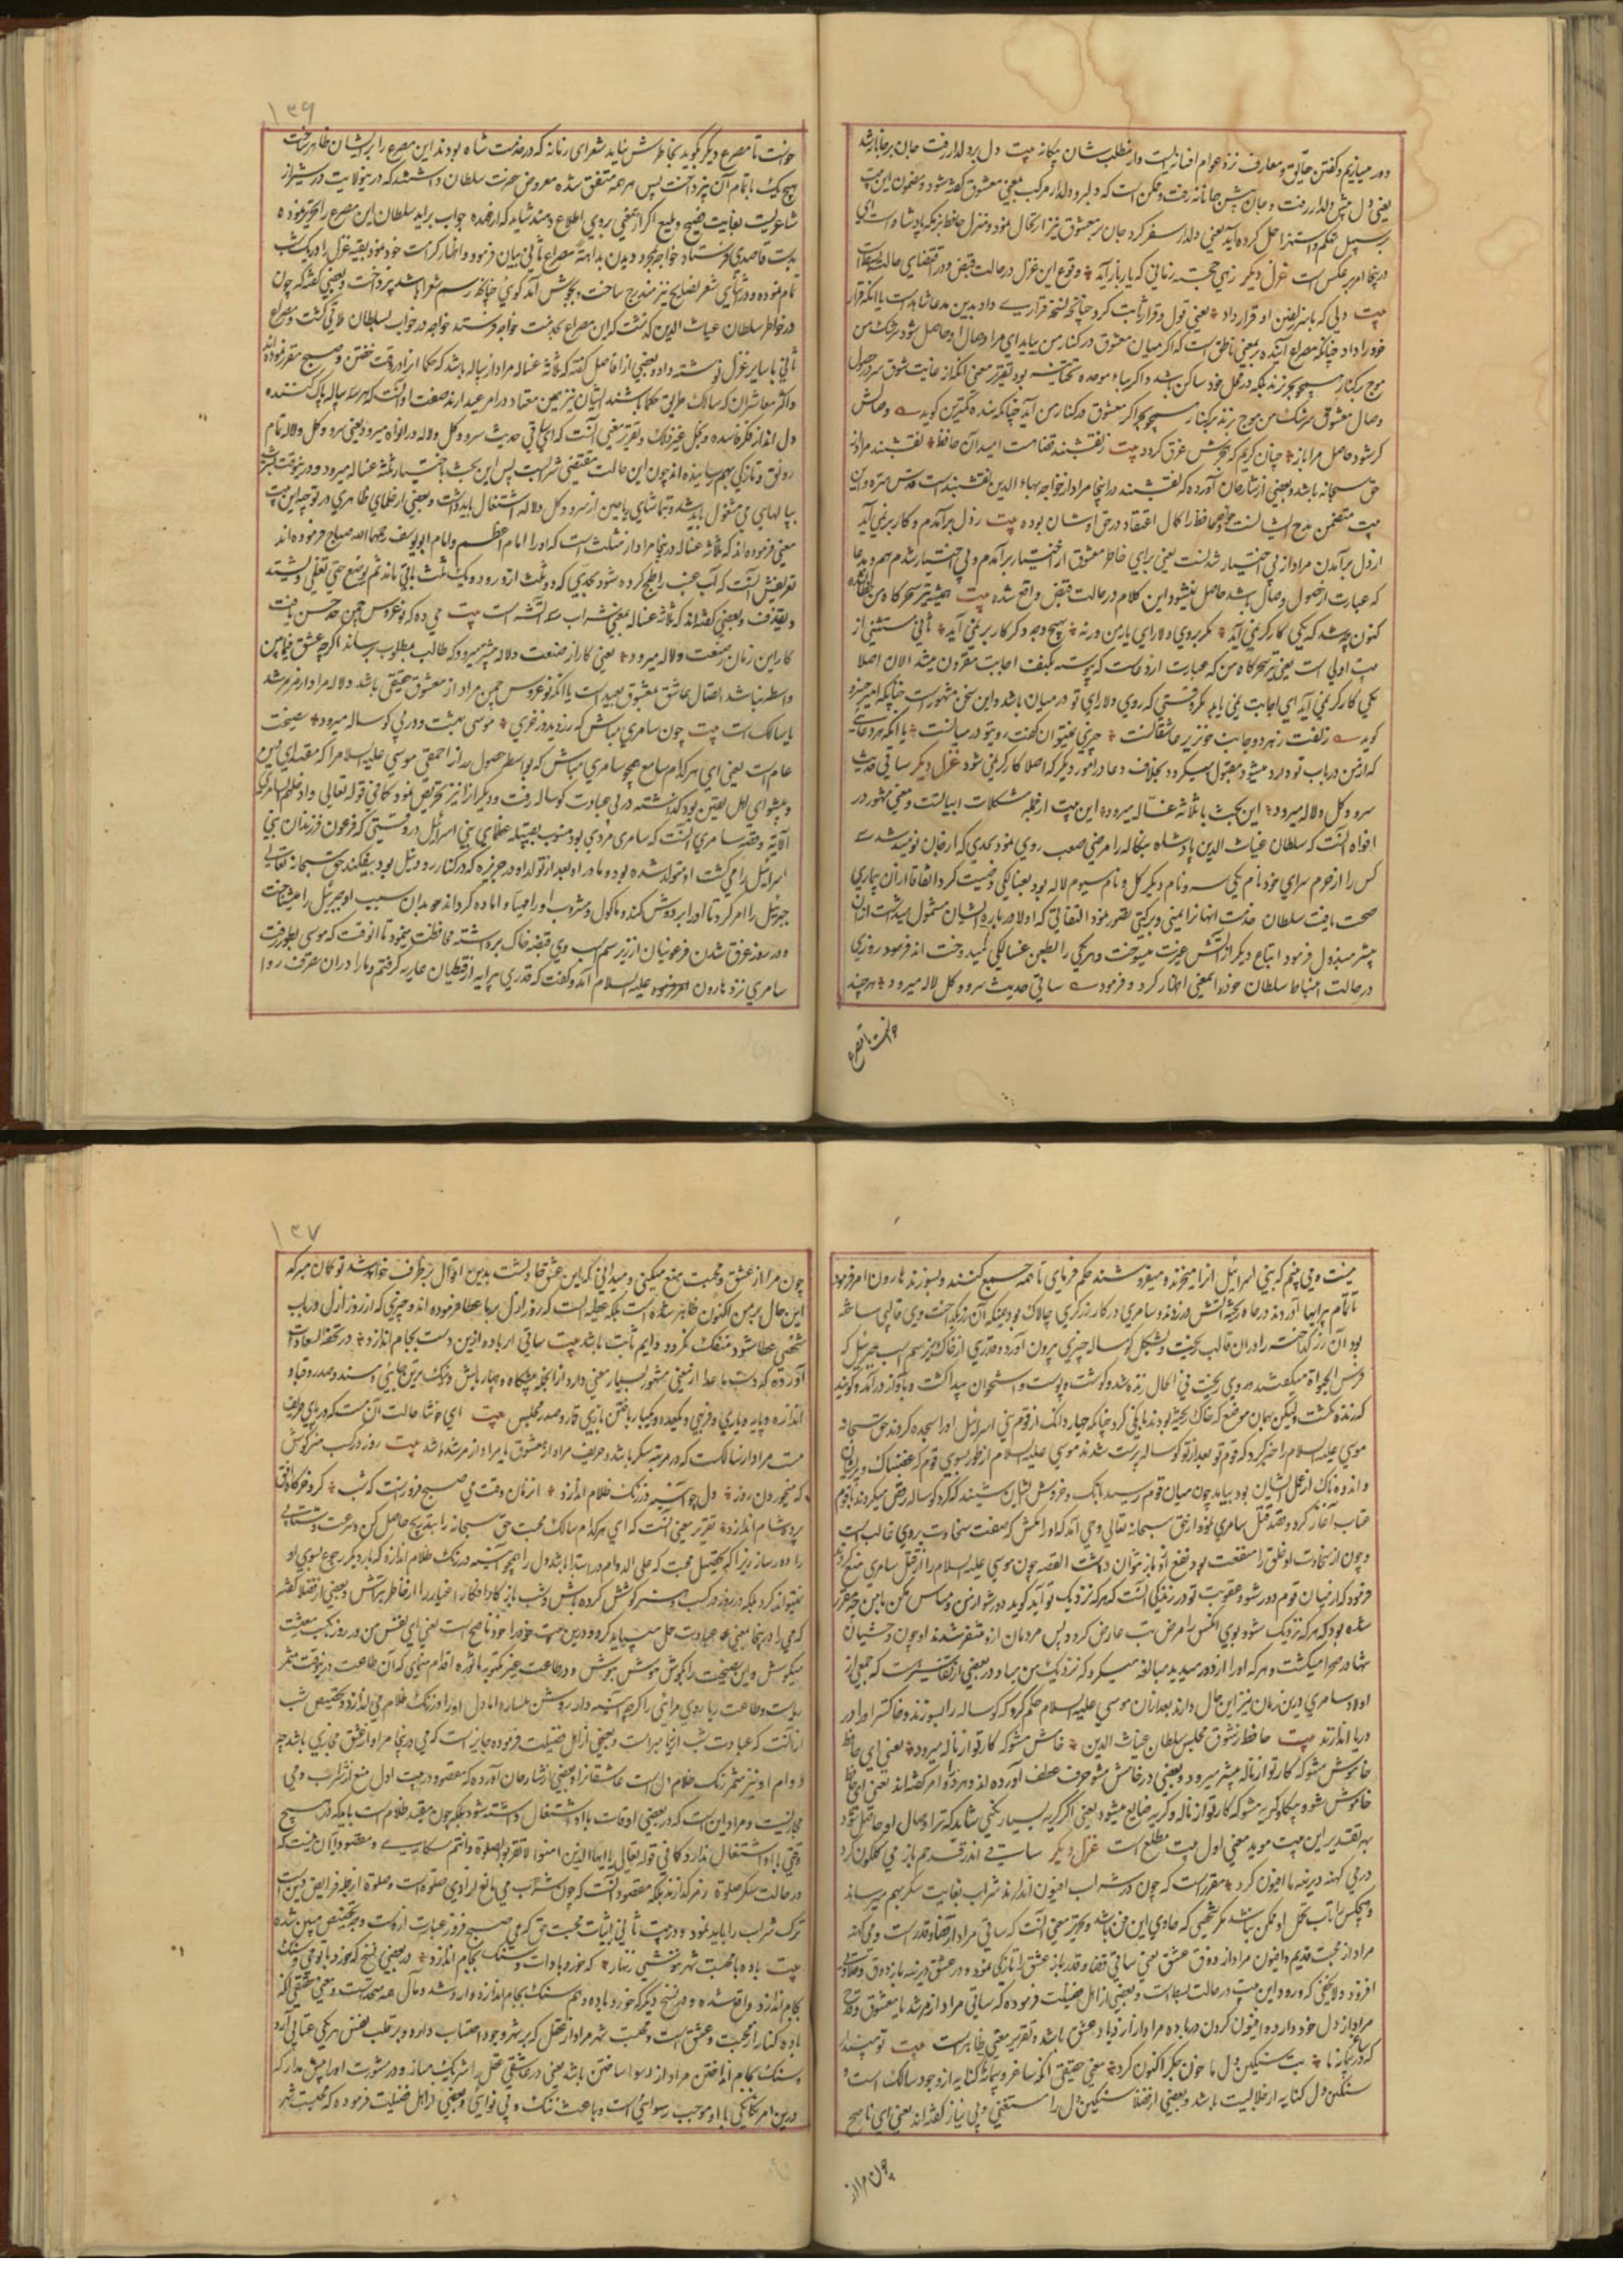 دور میسازیم و گفتن حقایق و معارف نزد عوام افسانه است و از مطلب شان بیگانه بیت دل بر دلدار رفت جان بر جانانه شد
یعنی دل پیش دلدار رفت و جان پیش جانانه رفت و ممکن است که دلبر و دلدار مرکب بمعنی معشوق گفته شود و مضمون این بیت
بر سبیل تحکم و استهزا حمل کرده آید یعنی دلدار سفر کرد جان بر معشوق نیز ارتحال نمود و منزل حافظ بزمگه پادشاه است ای
درینجا امر بر عکس است غزل دیگر زهی خجسته زمانی که یار باز آید وقوع این غزل در حالت قبض و در اقتضای حالت
بیت دلی که با سر زلفین او قرار داد یعنی قول و قرار ثابت کرد چنانچه نسخه قراری داد بدین مدعا شاهد است یا آنکه قرار
خود را داد چنانکه مصراع آینده بر معنی ناطق است که اگر میان معشوق در کنار من بیاید ای مراد حال او حاصل شود سرشک من
موج بر کنار همچو بحر نزند بلکه در محل خود ساکن باشد و اگر بباء موحده تحتانیه بود تقریر معنی آنکه از غایت شوق سرور حصول
وصال معشوق سرشک من موج زند بر کنار همچو بحر اگر معشوق در کنار من آید چنانکه بنده کمترین گوید وصالش
گر شود حاصل مرا باز چنان گریم که بحرش غرق گردد بیت ز نقشبند قضا هست امید آن حافظ نقشبند مراد از
حق سبحانه باشد و بعضی از شارحان آورده که نقشبند درینجا مراد از خواجه بهاء الدین نقشبند است قدس سره و این
بیت متضمن مدح ایشانست خواجه حافظ را کمال اعتقاد در حق اوشان بوده بیت ز دل برآمدم و کار بر نمی آید
از دل برآمدن مراد از بی اختیار شدنست یعنی برای خاطر معشوق از اختیار برآمدم و بی اختیار شدم هم و مدعا
که عبارت از حصول وصال باشد حاصل نمیشود این کلام در حالت قبض واقع شده بیت همیشه تیر سحرگاه من خطا نشدی
کنون چه شد که یکی کارگر نمی آید مگر بروی دلارای یار من ورنه بهیچ وجه دگر کار بر نمی آید ثانی مستثنی از
بیت اولی است یعنی تیر سحرگاه من که عبارت از دعاست که پیوسته بکیف اجابت مقرون میشد الان اصلا
یکی کارگر نمی آید ای اجابت نمی یابد مگر وقتی که روی دلارای تو در میان باشد و این سخن مشهور است چنانچه امیر خسرو
گوید زلفت ز هر دو جانب خونریز عاشقانست چیزی نمیتوان گفت روی تو در میانست یا آنکه هر دعای
که از من در باب تو وارد میشود مقبول میگردد بخلاف دعا در امور دیگر که اصلا کارگر نمی شود غزل دیگر ساقی حدیث
سرو و گل و لاله میرود این بحث با ثلاثه غساله میرود این بیت از جمله مشکلات ابیاتست و معنی مشهور در
افواه آنست که سلطان غیاث الدین پادشاه بنگاله را مرضی صعب روی نمود بحدی که از جان نومید شد سه
کس را از حرم سرای خود نام یکی سرو نام دیگر گل و نام سیوم لاله بود بغسالگی وصیت کرد اتفاقا از آن بیماری
صحت یافت سلطان خدمت آنها را یمنی و برکتی تصور نمود التفاتی که اولا درباره ایشان مشمول میداشت از آن
بیشتر مبذول فرمود اتباع دیگر از آتش غیرت میسوخت و هر یکی را بطعن غسالگی میدوخت اند فرمود روزی
در حالت انبساط سلطان خود را بمعنی اظهار کرد و فرمود ساقی حدیث سرو و گل و لاله میرود هر چند
خواست تا مصرع
۱۳۶
خواست تا مصرع دیگر بگوید بخاطرش نیاید شعرای زمانه که در خدمت شاه بودند این مصرع را بر ایشان ظاهر ساخت
هیچ یک باتمام آن نپرداخت پس همه متفق شده معروض حضرت سلطان داشتند که درینولایت در شیراز
شاعریست بغایت فصیح و بلیغ اگر از معنی بروی اطلاع دهند شاید که از عهده جواب برآید سلطان این مصرع را تحریر نموده
بدست قاصدی فرستاد خواجه بمجرد دیدن بداهتة مصراع ثانی بیان فرمود و اظهار کرامت خود نمود بقیه غزل را در یک شب
تمام نموده و در ثنای شعر نصایح نیز مندرج ساخت و بخوش آمد گوئی چنانچه رسم شعرا باشد پرداخت و بعضی گفته که چون
در خاطر سلطان غیاث الدین گذشت که این مصراع بخدمت خواجه فرستد خواجه در خواب بسلطان ملاقی گشت و مصراع
ثانی با سایر غزل نوشته داد و بعضی از افاضل گفته که ثلاثه غساله مراد از سه پیاله باشد که حکما از اوقات خفتن و صبح مقرر نموده اند
و اکثر معاشران که سالک طریق حکما باشند ایشان نیز همین معتاد دارند
دل انداز فکر فاسده و بخل و غیر ذلک و تقریر معنی آنست که ای ساقی حدیث سرو و گل و لاله در افواه میرود یعنی سرو و گل و لاله تمام
رونق و تازگی بهم رسانیده اند چون این حالت مقتضی شرابست پس این بحث باختیار ثلاثه غساله میرود و درینوقت
بپیالهای می مشغول باید شد و بتماشای ریاحین از سرو و گل و لاله اشتغال باید داشت و بعضی از علمای ظاهری در توجیه این بیت
معنی فرموده اند که ثلاثه غساله درینجا مراد از مثلث است که او را امام اعظم و امام ابو یوسف رحمهما الله مباح فرموده اند
تعریفش آنست که آب عنب را طبخ کرده شود بحدیکه دو ثلث ازو رود و یک ثلث باقی ماند ثم یوضع حتی یغلی و یشتد
و یقذف و بعضی گفته اند که ثلاثه غساله بمعنی شراب سه آتشه است بیت می ده که نو عروس چمن حد حسن یافت
کار این زمان ز صنعت دلاله میرود یعنی کار از صنعت دلاله پیشتر میرود که طالب بمطلوب برساند اگرچه عشق فیمابین
واسطه نباشد اتصال عاشق بمعشوق بعید است یا آنکه نو عروس چمن مراد از معشوق حقیقی باشد دلاله مراد از مرشد
یا سالک است بیت چون سامری مباش که زر دید و از خری موسی بهشت و در پی گوساله میرود نصیحت
عام است یعنی ای هر کدام سامع همچو سامری مباش که بواسطه حصول زر از احمقی موسی علیه السلام را که مقتدای دین
و پیشوای اهل یقین بود گذاشته در پی عبادت گوساله رفت و دیگران را نیز تحریض نمود کما فی قوله تعالی و اضلهم السامری
الآیة و قصه سامری آنست که سامری مردی بود منسوب بقبیله عظمای بنی اسرائیل در وقتی که فرعون فرزندان بنی
اسرائیل را می کشت او متولد شده بود و مادر او بعد از تولد او در جزیره که در کنار رود نیل بود بیفکند حق سبحانه تعالی
جبرئیل را امر کرد تا او را پرورش کند و ماکول و مشروب او را مهیا و آماده گرداند و بدان سبب او جبرئیل را میشناخت
و در روز غرق شدن فرعونیان از زیر سم اسب وی قبضه خاک برداشته محافظت مینمود تا آنوقت که موسی بطور رفت
سامری نزد هارون علیه السلام آمد و گفت که قدری پیرایه از قبطیان عاریه گرفتم و ما را در آن تصرف روا
نیست و می بینم که بنی اسرائیل آنرا میخرند و میفروشند حکم فرمای تا همه جمع کنند و بسوزند هارون امر فرمود
تا تمام پیرایها آوردند در چاه ریخته آتش در زدند و سامری در کار زرگری چالاک بود همینکه آن زر بگداخت وی قالبی ساخته
بود آن زر گداخته را در آن قالب ریخت و بشکل گوساله چیزی بیرون آورد و قدری از خاک زیر سم اسب جبرئیل که
فرس الحیوة میگفتند در وی ریخت فی الحال زنده شد و گوشت و پوست و استخوان پیدا گشت و بآواز در آمد و گویند
که زنده نگشت ولیکن بهمان موضع که خاک ریخته بودند بانگی کرد چنانکه چهار دانگ از قوم بنی اسرائیل او را سجده کردند حق سبحانه
موسی علیه السلام را خبر کرد که قوم تو بعد از تو گوساله پرست شدند موسی علیه السلام از طور بسوی قوم که غضبناک و پریشان
و اندوهناک از عمل ایشان بود بیامد چون میان قوم رسید بانگ و خروش ایشان شنید که گرد گوساله رقص میکردند با قوم
عتاب آغاز کرد و قصد قتل سامری نمود از حق سبحانه تعالی وحی آمد که او را مکش که صفت سخاوت بروی غالب است
و چون از سخاوت او خلق را منفعت بود نفع ازو باز نتوان داشت القصه چون موسی علیه السلام را از قتل سامری منع کردند
فرمود که از میان قوم دور شو و عقوبت تو در زندگی آنست که هر که نزدیک تو آید گوید دور شو از من و مساس مکن با من
شده بود که هر که نزدیک شود بوی آنکس را مرض تب عارض گردد پس مردمان ازو متنفر شدند او چون وحشیان
تنها در صحرا میگشت و هر که او را از دور میدید مبالغه میکرد که نزدیک من میا و در بعضی از تفاسیرست که جمعی از
اولاد سامری درین زمان نیز این حال دارند بعد از آن موسی علیه السلام حکم کرد که گوساله را بسوزند و خاکستر او را در
دریا اندازند بیت حافظ ز شوق مجلس سلطان غیاث الدین خامش مشو که کار تو از ناله میرود یعنی ای حافظ
خاموش مشو که کار تو از ناله پیشتر میرود و بعضی در خامش مشو حرف عطف آورده اند و هر دو را امر گفته اند یعنی ای حافظ
خاموش شو و گریه مشو که کار تو از ناله و گریه ضایع میشود یعنی اگر گریه بسیار نکنی شاید که ترا وصال او حاصل شود
بهر تقدیر این بیت موید معنی اول بیت مطلع است غزل دیگر ساقی اندر قدحم باز می گلگون کرد
در می کهنه دیرینه ما افیون کرد مقررست که چون در شراب افیون اندازند شراب بغایت سکر بهم میرساند
و هیچکس را تاب تحمل او ممکن نباشد مگر شخصی که عادی این فن باشد و تحریر معنی آنست که ساقی مراد از قضا و قدرست و می کهنه
مراد از محبت قدیم و افیون مراد از ذوق عشق یعنی ساقی قضا و قدر باز عشق را تازگی نمود و در عشق دیرینه باز ذوق و حلاوت
افزود و لا یخفی که ورود این بیت در حالت بسط است و بعضی از اهل فضیلت فرموده که ساقی مراد از مرشد یا معشوق و قدح
مراد از دل خود دارد و افیون کردن در باده مراد از ازدیاد عشق باشد و تقریر معنی ظاهرست بیت تو مپندار
که در پیمانه ما بت سنگین دل ما خون جگر اکنون کرد معنی حقیقی آنکه ساغر و پیمانه کنایه از وجود سالک است و
سنگین دل کنایه از غالبیت باشد و بعضی از فضلا سنگین دل را مستغنی و بی نیاز گفته اند یعنی ای ناصح
چون مرا از
۱۳۷
چون مرا از عشق و محبت منع میکنی و میدانی که این عشق حادثست بدین اقوال برطرف خواهد شد تو گمان مبر که
این حال بر من اکنون ظاهر شده است بلکه عطیه ایست که روز ازل بما عطا فرموده اند و چیزی که از روز ازل در باب
شخصی عطا شود منفک نگردد و دایم ثابت باشد بیت ساقی ار باده ازین دست بجام اندازد در تحفة السعادات
آورده که دست ما عدا از معنی مشهور بسیار معنی دارد از آنجمله پیشگاه و چهار بالش
اندازه و پایه و یاری و فرجی و یکعدد و یکبار باختن بازی قمار و صدر مجلس بیت ای خوشا حالت آن مست که در پای حریف
مست مراد از سالکست که در مرتبه سکر باشد و حریف مراد از معشوق یا مراد از مرشد باشد بیت روز در کسب هنر کوش
که می خوردن روز دل چو آئینه در زنگ ظلام اندازد آنزمان وقت می صبح فروزست که شب گرد خرگاه افق
پرده شام اندازد تقریر معنی آنست که ای هر کدام سالک محبت حق سبحانه را بتدریج حاصل کن و سرعت و شتابی
را ره مده زیرا که تحصیل محبت که علی الدوام در ابتدا باشد دل را همچو آئینه در زنگ ظلام اندازد که بار دیگر رجوع بسوی او
نتواند کرد بلکه در روز در کسب هنر کوشش کرده باش و شب باز کار و افکار اغیار را از خاطر بتراش و بعضی از فضلا گفته
که می را درینجا بمعنی عبادت حمل میباید کرد و درین بیت خود را خود ناصح است یعنی ای نفس من در روز بکسب معیشت
میکوش و این نصیحت را بگوش هوش بنیوش و در طاعت غیر مکتوبه
ریاست و طاعت ریا روی مرائی را گرچه آئینه دار روشن
از آنست که عبادت شب از ریا مبراست و بعضی از اهل فضیلت فرموده جایز است که می درینجا مراد از عشق مجازی باشد چه
دوام او نیز مثمر زنگ ظلام دل است عاشقانرا و بعضی از شارحان آورده که مقصود در بیت اول منع از شراب و می
مجازیست و مراد این است که در بعضی اوقات با او اشتغال داشته شود بلکه چون مقید ظلام است باید که در هیچ
وقتی با او اشتغال ندارد کما فی قوله تعالی یا ایها الذین آمنوا لا تقربوا الصلوة و انتم سکاری و مقصود از آن نیست که
در حالت سکر صلوة نگذارند بلکه مقصود آنست که چون شراب می مانع از ادای صلوة است و صلوة از جمله فرایض دین است
ترک شراب را باید نمود و در بیت ثانی اثبات محبت حق که می صبح فروز عبارت ازوست
بیت باده با محتسب شهر ننوشی زنهار که خورد بادهات و سنگ بجام اندازد در بعضی نسخ که خورد با تو می و سنگ
بجام اندازد واقع شده و در نسخ دیگر که خورد باده و هم سنگ بجام اندازد وارد شده و مآل همه متحدست و معنی حقیقی آنکه
باده کنایه از محبت و عشق است و محتسب شهر مراد از عقل که بر شهر وجود احتساب دارد و بر قلب و نفس هر یکی عتابی آرد
و سنگ بجام انداختن مراد از رسوا ساختن باشد یعنی در عاشقی عقل را شریک مساز و در مشورت او را پیش مدار که
درین امر یگانگی با او موجب رسوائی است و باعث ننگ و بی نوائی و بعضی از اهل فضیلت فرموده که محتسب شهر